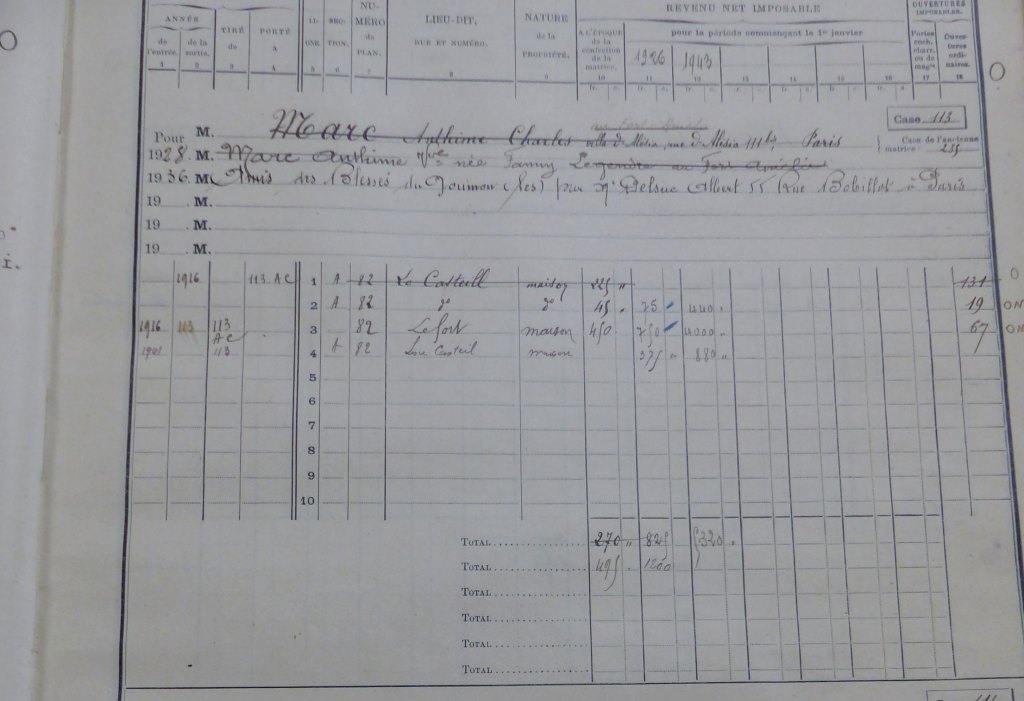 ANNÉE
de l'entrée. de la sortie. TIRÉ de PORTÉ à LI- GNE. SEC- TION. NU- MÉRO de PLAN. LIEU-DIT, RUE ET NUMÉRO. NATURE de la PROPRIÉTÉ. REVENU NET IMPOSABLE OUVERTURES IMPOSABLES.
pour la période commençant le 1er janvier
A L'ÉPOQUE de la confection de la matrice. 1926 1943 Portes coch. charr. ou de magin. Ouver- tures ordi- naires.
1 2 3 4 5 6 7 8 9 10 11 12 13 14 15 16 17 18
fr. c. fr. c. fr. c. fr. c. fr. c. fr. c. fr. c.
Case 113
Pour M. Marc Anthime Charles villa d'Alésia, rue d'Alésia 111bis Paris
Case de l'ancienne matrice : 235
1928. M. Marc Anthime Vve née Fanny Legendre au Fort
1936. M. Amis des Blessés du Poumon (les) par Mr Delsuc Albert 55 Rue Bobillot à Paris
19 . M.
19 . M.
19 . M.
1916 113 AC 1 A 82 Le Casteill maison 225 " 131
2 A 82 do do 45 " 75 440 " 19
1916 113 113 AC 3 82 Le fort maison 450 . 750 4000 " 67
1941 113 4 A 82 Lou Casteil maison 375 " 880 "
5
6
7
8
9
10
Total 270 " 825 5320 "
Total 495 . 1200
Total
Total
Total
Total